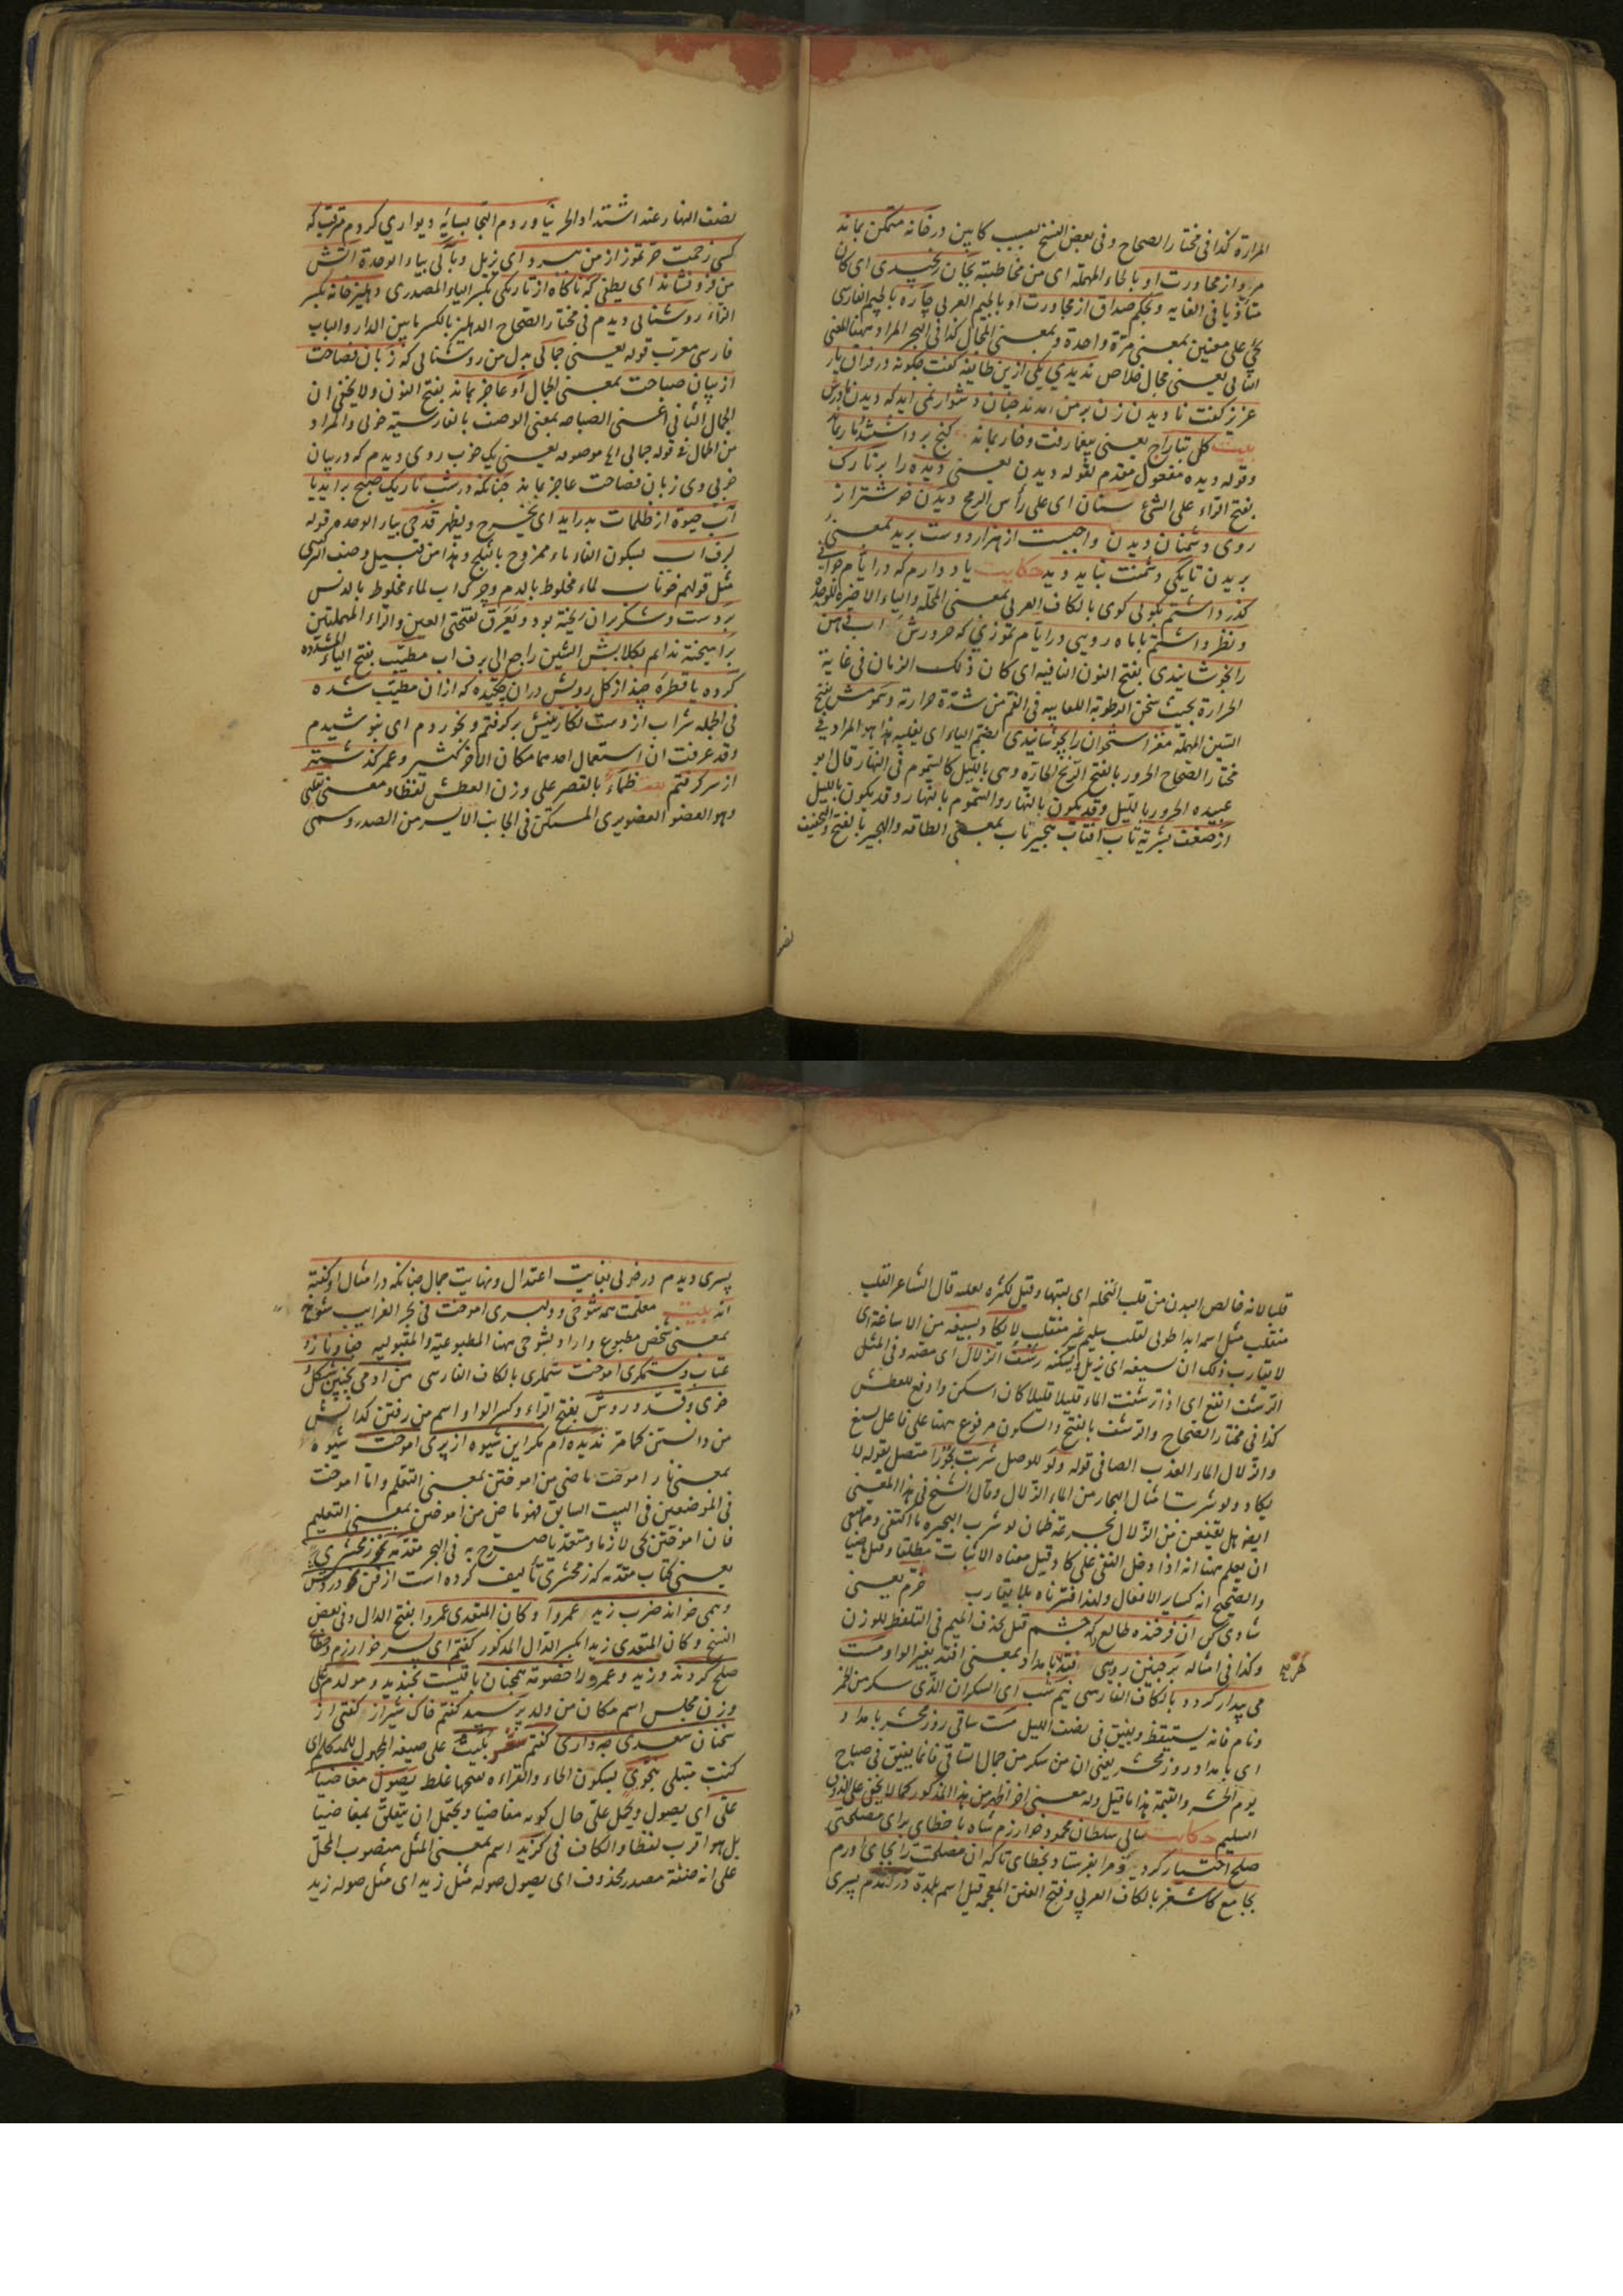 المرارة كذا فى مختار الصحاح وفى بعض النسخ بسبب كابين در خانه متمكن بماند
مرد از محاورت او بالحاء المهملة اى من مخاطبته بجان رنجيدى اى كان
متأذيا فى الغاية وبحكم صداق از مجاورت او بالجيم العربى چاره بالجيم الفارسى
يجئ على معنيين بمعنى مرّة واحدة وبمعنى المجال كذا فى البحر المراد ههنا المعنى
الثانى يعنى مجال خلاص نديدى يكى ازين طايفه كفت چكونه در فراق يار
عزيز كفت ناديدن زن بر من چنان دشوار نمى ايد كه ديدن مادرش
بيت كل بتاراج يعنى بيغما رفت وخار بماند كنج برداشتند مار بماند
وقوله ديده مفعول مقدم لقوله ديدن يعنى ديده را بر تارك
بفتح الراء على الشئ سنان اى على رأس الرمح ديدن خوشتر از
روى دشمنان ديدن واجبست از هزار دوست بريد بمعنى
بريدن تا يكى دشمنت نبايد ديد حكايت ياد دارم كه در ايام جوانى
كذر داشتم بكويى كوى بالكاف العربى بمعنى المحلة والياء الاخيرة للوحدة
ونظر داشتم با ماه رويى در ايام تموزى كه حرورش اب دهن
را بخوشانيدى بفتح النون النافيه اى كان ذلك الزمان فى غاية
الحرارة بحيث سخن الرطوبة اللعابيه فى الفم من شدّة حرارته وسمومش بفتح
السين المهملة مغز استخوان را بجوشانيدى بضم الياء اى يغليه هذا هو المراد فى
مختار الصحاح الحرور بالفتح الريح الحارّة وهى بالليل كالسموم فى النهار قال ابو
عبيده الحرور بالليل وقد يكون بالنهار والسموم بالنهار وقد يكون بالليل
از ضعف بشريّة تاب افتاب هجير تاب بمعنى الطاقة والهجير بالفتح والتخفيف
نصف
نصف النهار عند اشتداد الحر نياوردم التجا بسايه ديوارى كردم مترقب كه
كسى زحمت حرّ تموز از من ببرد اى يزيل وبآبى بياء الوحدة آتش
من فرو نشاند اى يطفى كه ناكاه از تاريكى بكسر الياء المصدرى دهليز خانه بكسر
التاء روشنايى ديدم فى مختار الصحاح الدهليز بالكسر ما بين الدار والباب
فارسى معرّب قوله يعنى جمالى بدل من روشنايى كه زبان فصاحت
از بيان صباحت بمعنى الجمال او عاجز بماند بفتح النون ولا يخفى ان
الجمال الثانى اعنى الصباحه بمعنى الوصف بالفارسية خوبى والمراد
من الجمال فى قوله جمالى اما موصوفه يعنى يك خوب روى ديدم كه در بيان
خوبى وى زبان فصاحت عاجز بماند چنانكه در شب تاريك صبح برايد يا
آب حيوة از ظلمات بدر ايد اى يخرج ويظهر قدحى بياء الوحده مر قوله
برف اب بسكون الفاء ماء ممزوج بالثلج وهذا من قبيل وصف الشئ
مثل قولهم خوناب لماء مخلوط بالدم وچركاب لماء مخلوط بالدنس
بر دست وشكر بران ريخته بود وبعرق بفتحتى العين والراء المهملتين
برآميخته ندانم بكلابش الشين راجع الى برف اب مطيّب بفتح الياء المشدده
كرده يا قطرهٔ چند از كل رويش دران چكيده كه ازان مطيّب شده
فى الجمله شراب از دست نكارينش بركرفتم وبخوردم اى بنوشيدم
وقد عرفت ان استعمال احدهما مكان الاخر كثير وعمر كذشته
از سر كرفتم بيت ظمأ بالقصر على وزن العطش لفظا ومعنى بقلبى
وهو العضو الصنوبرى المستكن فى الجانب الايسر من الصدر وسمى
قلبا لانه خالص البدن من قلب النخله اى لبّها وقيل لكثره تقلبه قال الشاعر القلب
منقلب مثل اسمه ابدا طوبى لقلب سليم غير منقلب لا يكاد يسيغه من الاساغة اى
لا يقارب ذلك ان يسيغه اى يزيل ويسكنه رشف الزلال اى مصّه وفى المثل
الرشف انقع اى اذا ترشفت الماء قليلا قليلا كان اسكن وادفع للعطش
كذا فى مختار الصحاح والرشف بالفتح والسكون مرفوع ههنا على فاعل يسيغ
والزلال الماء العذب الصافى قوله ولو للوصل شربت بحورا متصل بقوله لا
يكاد ولو شربت امثال البحار من الماء الزلال وقال الشيخ فى هذا المعنى
ايضا هل يقنعن من الزلال بجرعة ظمان لو شرب البحيرة ما اكتفى
ان يعلم ههنا انه اذا دخل النفى على كاد قيل معناه الاثبات مطلقا وقيل ماضيا
والصحيح انه كساير الافعال ولهذا فسّرناه بلا يقارب خرّم يعنى
شادى كن ان فرخنده طالع را كه چشم قيل بحذف الميم فى التلفظ للوزن
وكذا فى امثاله بر چنين رويى افتد بامداد بمعنى افتد بغير الواو مست
مى بيدار كردد بالكاف الفارسى نيم شب اى السكران الذى سكر من الخمر
ونام فانه يستيقظ ويفيق فى نصف الليل مست ساقى روز محشر بامداد
اى بامداد روز محشر يعنى ان من سكر من جمال الساقى فانما يفيق فى صباح
يوم الحشر والقيمة هذا ما قيل وله معنى اخر اظهر من هذا المذكور كما لا يخفى على الذوق
السليم حكايت سالى سلطان محمود خوارزم شاه با خطاى براى مصلحتى
صلح اختيار كرد ومرا بفرستاد بخطاى تا كه ان مصلحت را بجاى اورم
بجامع كاشغر بالكاف العربى وفتح الغين المعجمه قيل اسم بلدة در امدم پسرى
پسرى ديدم در خوبى بغايت اعتدال ونهايت جمال چنانكه در امثال او كفته
اند بيت معلمت همه شوخى ودلبرى اموخت فى بحر الغرايب شوخ
بمعنى شخص مطبوع واراد بشوخى ههنا المطبوعية والمقبوليه جفا وناز و
عتاب وستمكرى اموخت ستمكرى بالكاف الفارسى من ادمى بچنين شكل و
خوى وقد وروش بفتح الراء وكسر الواو اسم من رفتن كدانش
من دانستن كما مرّ نديده ام مكر اين شيوه از پرى اموخت شيوه
بمعنى ناز اموخت ماضى من اموختن بمعنى التعلم وامّا اموخت
فى الموضعين فى البيت السابق فهو ماض من اموختن بمعنى التعليم
فان اموختن يجئ لازما ومتعدّيا صرّح به فى البحر مقدّمه نحو زمخشرى
يعنى كتاب مقدّمه كه زمخشرى تأليف كرده است از فن نحو در دستش
وهمى خواند ضرب زيد عمروا وكان المتعدى عمروا بفتح الدال وفى بعض
النسخ وكان المتعدى زيدا بكسر الدال المذكور كفتم اى پسر خوارزم وخطاى
صلح كردند وزيد وعمرو را خصومة همچنان باقيست بخنديد ومولدم على
وزن مجلس اسم مكان من ولد پرسيد كفتم خاك شيراز كفتى از
سخنان سعدى چه دارى كفتم شعر بليت على صيغه المجهول للمتكلم اى
كنت مبتلى بنحوىّ بسكون الحاء والقراءة بفتحها غلط يصول مغاضبا
علىّ اى يصول ويحمل علىّ حال كونه مغاضبا ويحتمل ان يتعلّق بمغاضبا
بل هو اقرب لفظا والكاف فى كزيد اسم بمعنى المثل منصوب المحلّ
على انه صفة مصدر محذوف اى يصول صولة مثل زيد اى مثل صولة زيد